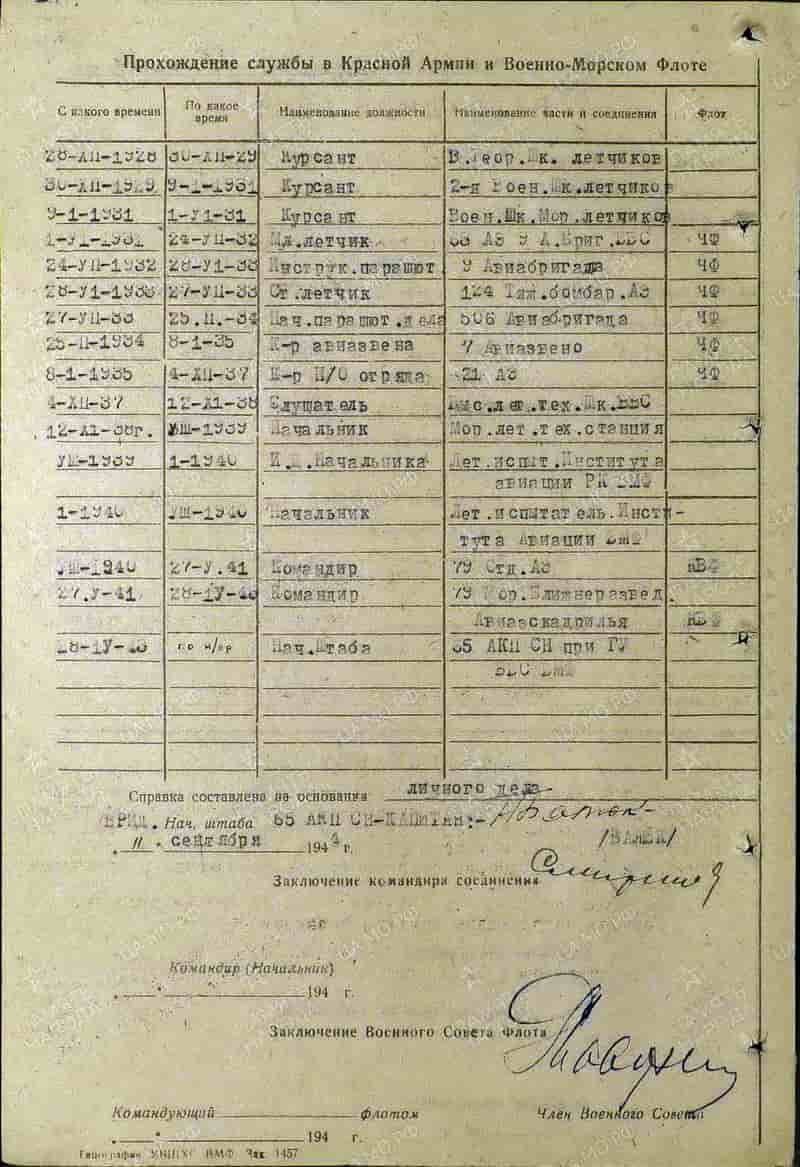 Прохождение службы в Красной Армии и Военно-Морском Флоте
С какого времени По какое время Наименование должности Наименование части и соединения Флот
28-ХП-1928 30-ХП-29 Курсант В.Теор.Шк. летчиков
30-ХП-1929 9-1-1931 Курсант 2-я Воен.Шк.летчико
9-1-1931 1-У1-31 Курсант Воен.Шк.Мор.летчиков
1-У1-1931 24-УП-32 Мл.летчик АЭ 9 А.Бриг.ВВС ЧФ
24-УП-1932 28-У1-33 Инструк.парашют 9 Авиабригада ЧФ
28-У1-1933 27-УП-33 Ст.летчик 124 Тяж.бомбар.АЭ ЧФ
27-УП-33 25.П.-34 Нач.парашют.дела 506 Авиабригада ЧФ
25-П-1934 8-1-35 К-р авиазвена 7 Авиазвено ЧФ
8-1-1935 4-ХП-37 К-р отряда 21 АЭ ЧФ
4-ХП-37 12-Х1-38 Слушатель Выс.лет.тех.Шк.ВВС
12-Х1-38г. УШ-1939 Начальник Мор.лет.тех.станция
УШ-1939 1-1940 И.Д.Начальника Лет.испыт.Института
авиации РК ВМФ
1-1940 УШ-1940 Начальник Лет.испытатель.Инсти-
тута Авиации ВМФ
УШ-1940 27-У.41 Командир 79 Отд.АЭ
27.У-41 28-1У-43 Командир 79 Мор.Ближнеразвед.
Авиаэскадрилья
28-1У-43 по н/вр Нач.Штаба 65 АКП СН при ГУ
ВВС ВМФ
Справка составлена на основания личного дела
ВРИД. Нач. штаба 65 АКП СН-КАПИТАН:-
"11" сентября 1944 г.
Заключение командира соединения
Командир (Начальник)
" " 194 г.
Заключение Военного Совета Флота
Командующий флотом Член Военного Совета
" " 194 г.
Типография ВМФ Зак 1457